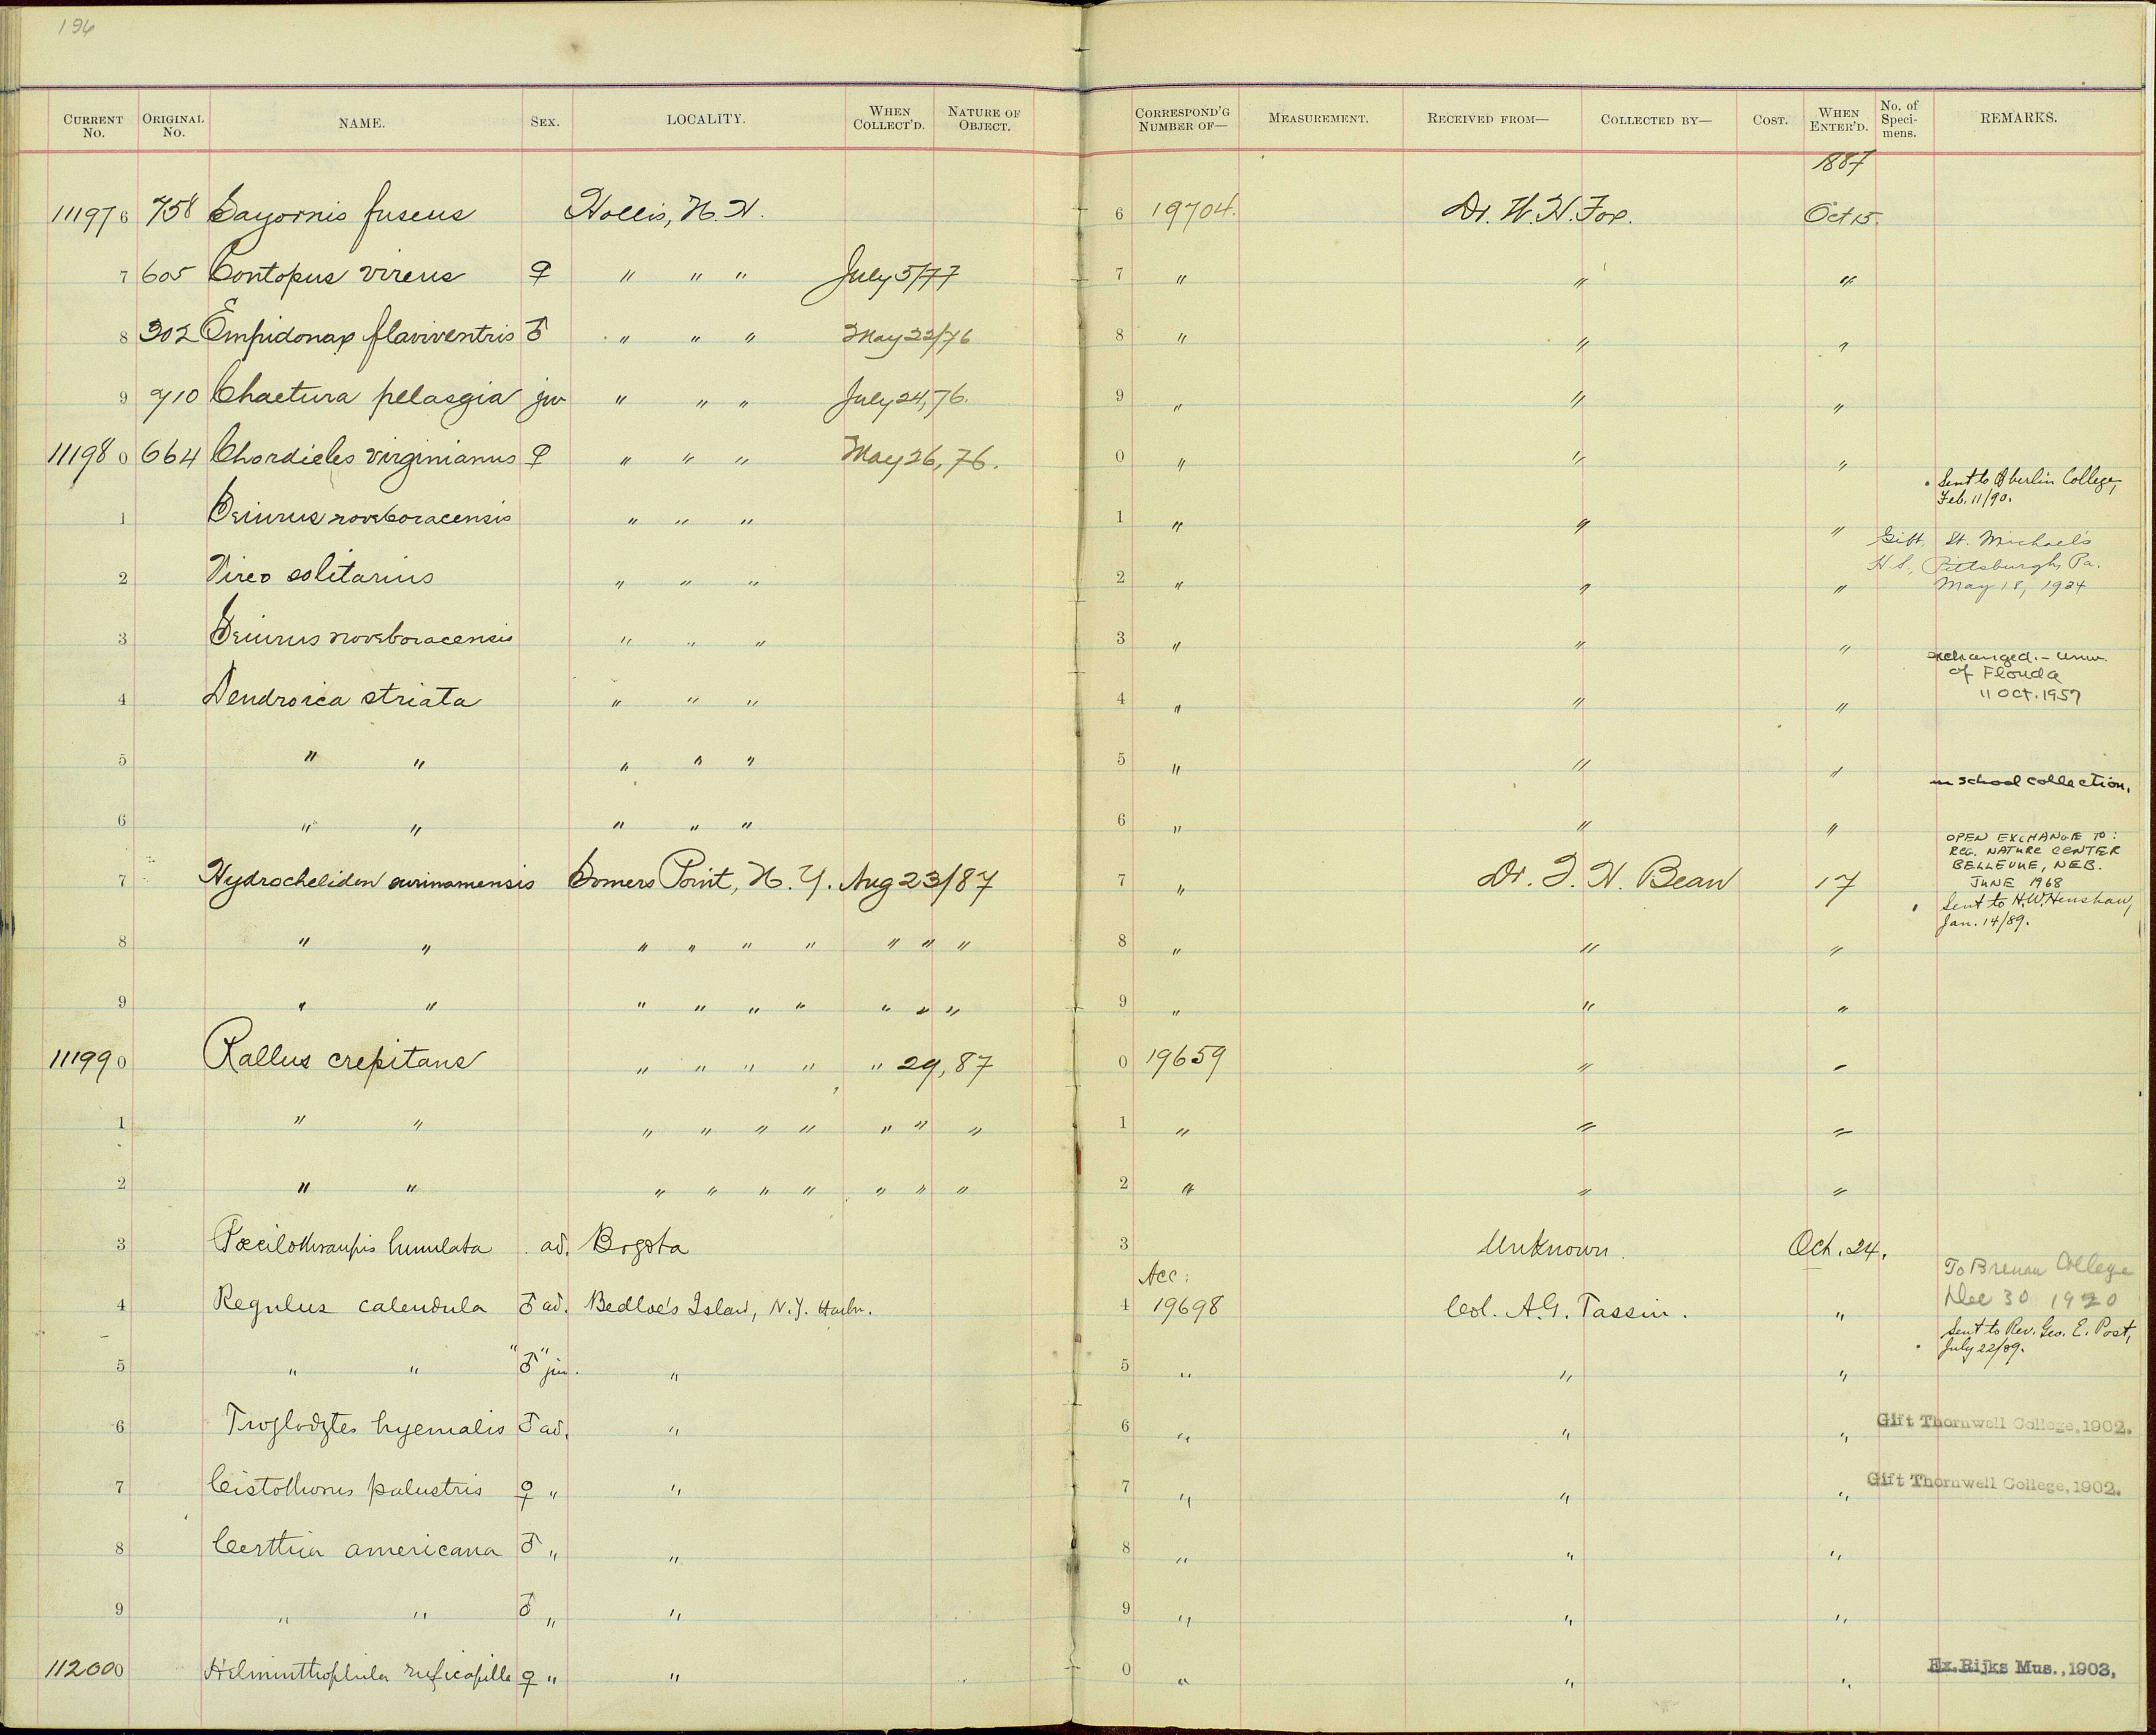 196
CURRENT No. ORIGINAL No. NAME. SEX. LOCALITY. WHEN COLLECT'D. NATURE OF OBJECT. CORRESPOND'G NUMBER OF— MEASUREMENT. RECEIVED FROM— COLLECTED BY— COST. WHEN ENTER'D. No. of Specimens. REMARKS.
1887
111976 758 Sayornis fuscus Hollis, N. H. 6 19704. Dr. W. H. Fox. Oct 15.
7 605 Contopus virens ♀ " " " July 5/77 7 " " "
8 302 Empidonax flaviventris ♂ " " " May 22/76 8 " " "
9 710 Chaetura pelasgia juv " " " July 24, 76. 9 " " "
111980 664 Chordieles virginianus ♀ " " " May 26, 76. 0 " " "
Sent to Oberlin College, Feb. 11/90.
1 Seiurus noveboracensis " " " 1 " " "
Gift, St. Michael's
H.S., Pittsburgh, Pa.
May 18, 1934
2 Vireo solitarius " " " 2 " " "
3 Seiurus noveboracensis " " " 3 " " "
exchanged.- Univ.
of Florida
11 Oct. 1957
4 Dendroica striata " " " 4 " " "
5 " " " " " 5 " " "
in school collection.
6 " " " " " 6 " " "
OPEN EXCHANGE TO:
REG. NATURE CENTER
BELLEVUE, NEB.
JUNE 1968
7 Hydrochelidon surinamensis Somers Point, N. Y. Aug 23/87 7 " Dr. T. H. Bean 17
Sent to H.W. Henshaw,
Jan. 14/89.
8 " " " " " " " " " 8 " " "
9 " " " " " " " " " 9 " " "
111990 Rallus crepitans " " " " " 29, 87 0 19659 " "
1 " " " " " " " " " 1 " " "
2 " " " " " " " " " 2 " " "
3 Pœcilothraupis lunulata ad. Bogota 3 Unknown. Oct. 24.
To Brenau College
Dec 30 1920
Acc:
4 Regulus calendula ♂ ad. Bedloe's Island, N.Y. Harbr. 4 19698 Col. A.G. Tassin. "
Sent to Rev. Geo. E. Post,
July 22/89.
5 " " "♂" juv. " 5 " " "
6 Troglodytes hyemalis ♂ ad. " 6 " " " Gift Thornwell College, 1902.
7 Cistothorus palustris ♀ " " 7 " " " Gift Thornwell College, 1902.
8 Certhia americana ♂ " " 8 " " "
9 " " ♂ " " 9 " " "
112000 Helminthophila ruficapilla ♀ " " 0 " " " Ex. Rijks Mus., 1903.